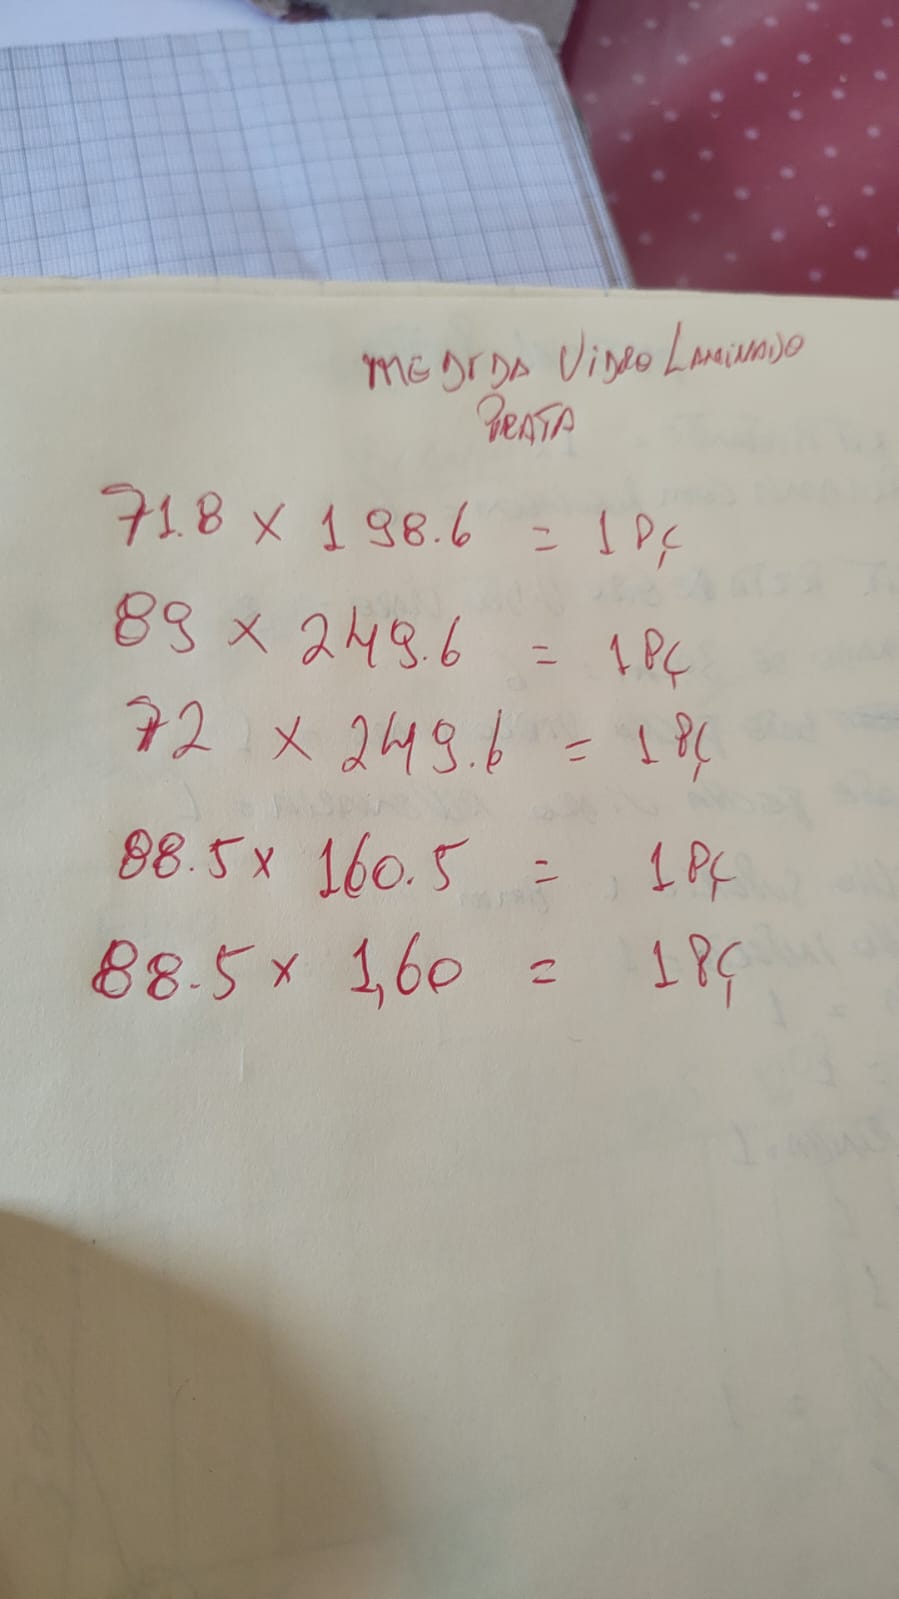 MEDIDA VIDRO LAMINADO
PRATA
71.8 x 198.6 = 1 PÇ
89 x 249.6 = 1 PÇ
72 x 249.6 = 1 PÇ
88.5 x 160.5 = 1 PÇ
88.5 x 1,60 = 1 PÇ